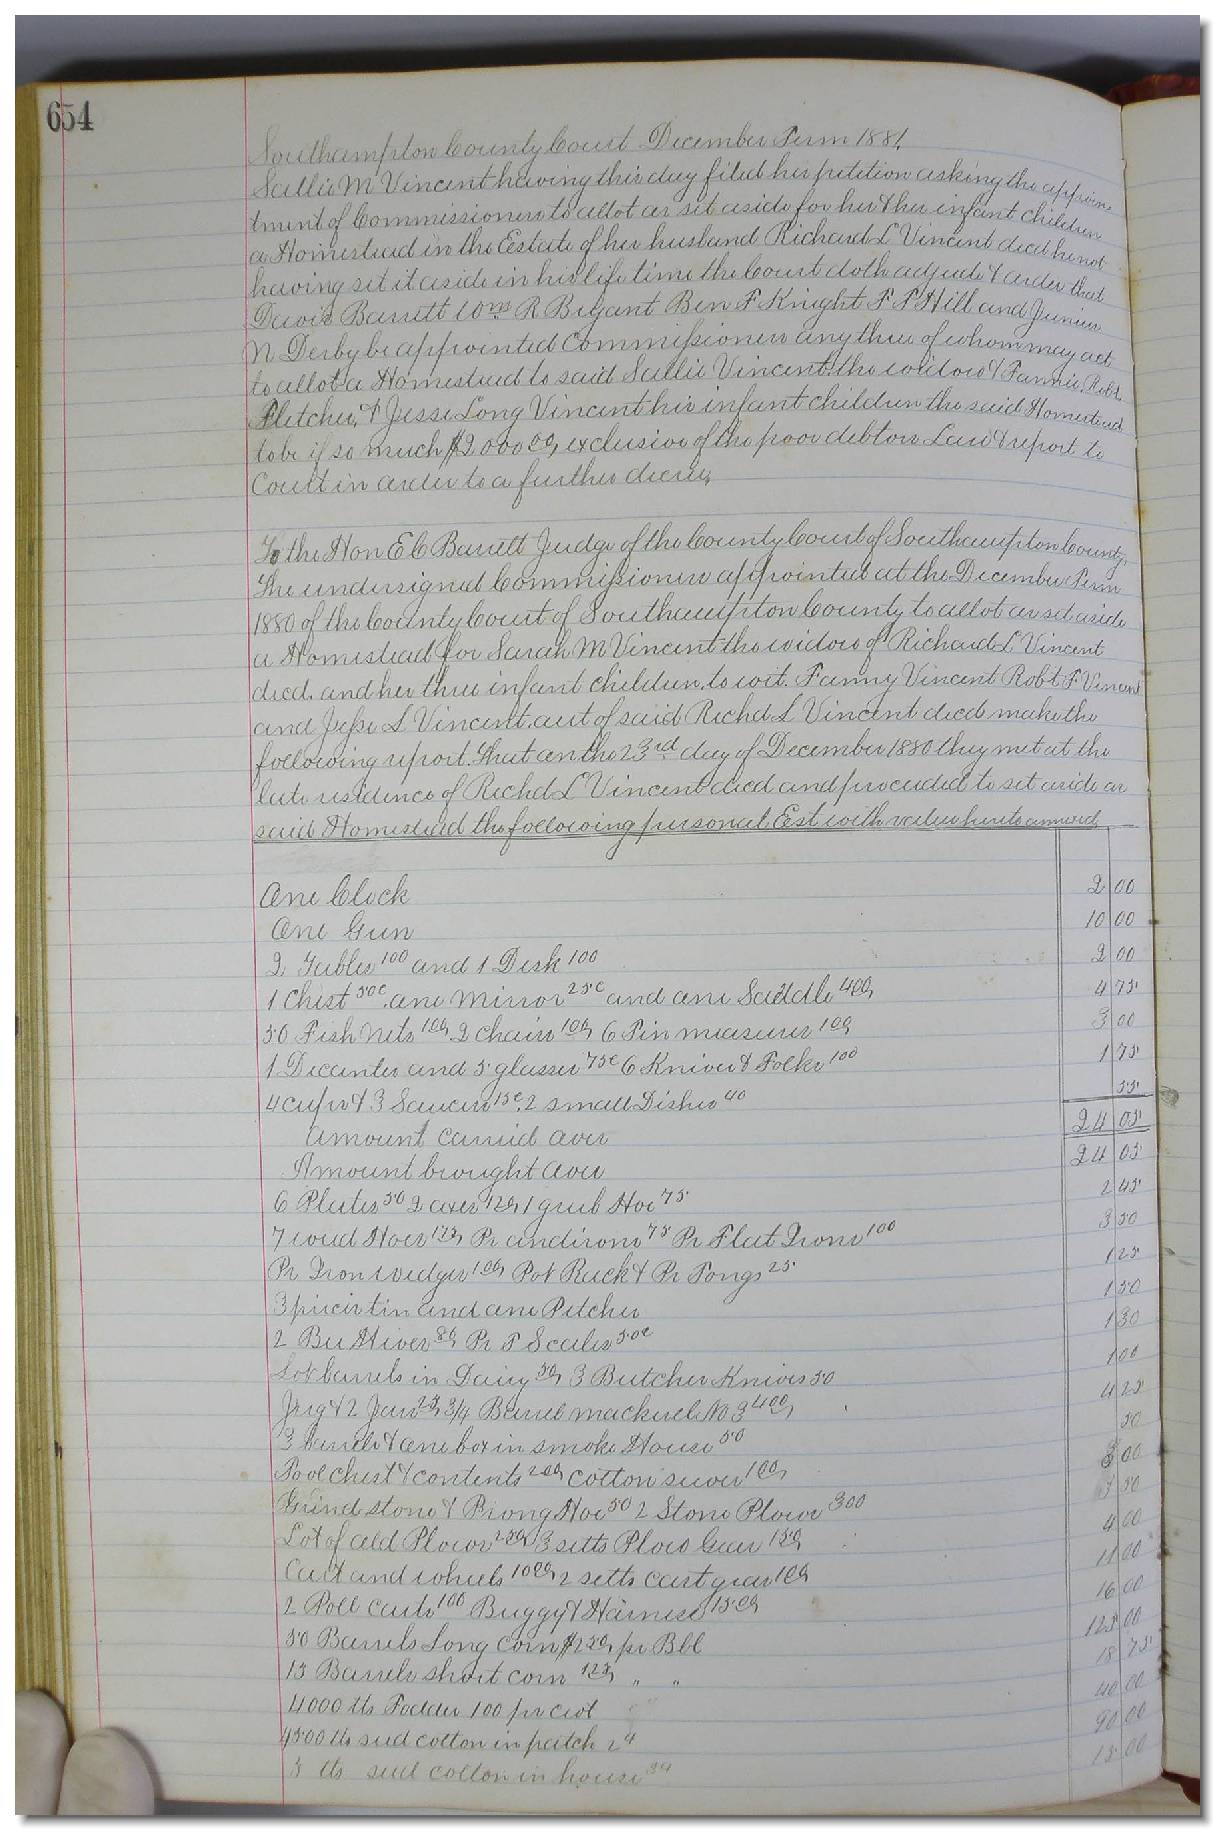 654
Southampton County Court December Term 1881.
Sallie M Vincent having this day filed her petition asking the appoin
tment of Commissioners to allot or set aside for her & her infant children
a Homestead in the Estate of her husband Richard L Vincent decd he not
having set it aside in his life time the Court doth adjudge & order that
Davis Barrett Wm R Bryant Ben F Knight F F Hill and Junius
N Derby be appointed Commissioners any three of whom may act
to allot a Homestead to said Sallie Vincent the widow & Fannie, Robt
Fletcher, & Jesse Long Vincent his infant children the said Homestead
to be if so much $2000 00, exclusive of the poor debtors Law & report to
Court in order to a further decree,
To the Hon E C Barrett Judge of the County Court of Southampton County,
The undersigned Commissioners appointed at the December Term
1880 of the County Court of Southampton County to allot or set aside
a Homestead for Sarah M Vincent the widow of Richard L Vincent
decd. and her three infant children, to wit. Fanny Vincent Robt F Vincent
and Jesse L Vincent. out of said Richd L Vincent decd make the
following report. That on the 23rd day of December 1880 they met at the
late residence of Richd L Vincent decd and proceeded to set aside as
said Homestead the following personal Est with value hereto annexed,
One Clock 2 00
One Gun 10 00
2 Tables 100 and 1 Desk 100 2 00
1 Chest 50c. one Mirror 25c and one Saddle 400, 4 75
50 Fish Nets 100, 2 chairs 100, 6 Tin measures 100, 3 00
1 Decanter and 5 glasses 75c 6 Knives & Folks 100 1 75
4 cups & 3 Saucers 15c. 2 small Dishes 40 55
Amount carried over 24 05
Amount brought over 24 05
6 Plates 50 2 axes 120, 1 grub Hoe 75 2 45
7 weed Hoes 175, Pr andirons 75 Pr Flat Irons 100 3 50
Pr Iron wedges 100, Pot Rack & Pr Tongs 25 1 25
3 pieces tin and one Pitcher 1 50
2 Bee Hives 80, Pr P Scales 50c 1 30
Lot barrels in Dairy 50, 3 Butcher Knives 50 1 00
Jug & 2 Jars 25, 3/4 Barrel mackerel No 3 400, 4 25
3 barrels & one box in smoke House 50 50
Tool chest & contents 200, cotton sewer 100, 3 00
Grind stone & Prong Hoe 50 2 Stone Plows 300 3 50
Lot of old Plows 250, 3 setts Plow Gear 150, 4 00
Cart and wheels 1000, 2 setts cart gear 100, 11 00
2 Roll carts 100 Buggy & Harness 1500, 16 00
50 Barrels Long corn $2 50, pr Bbl 125 00
15 Barrels short corn 125, " " 18 75
4000 lbs Fodder 100 pr cwt 40 00
4500 lbs seed cotton in patch 2 90 00
lbs seed cotton in house 15 00